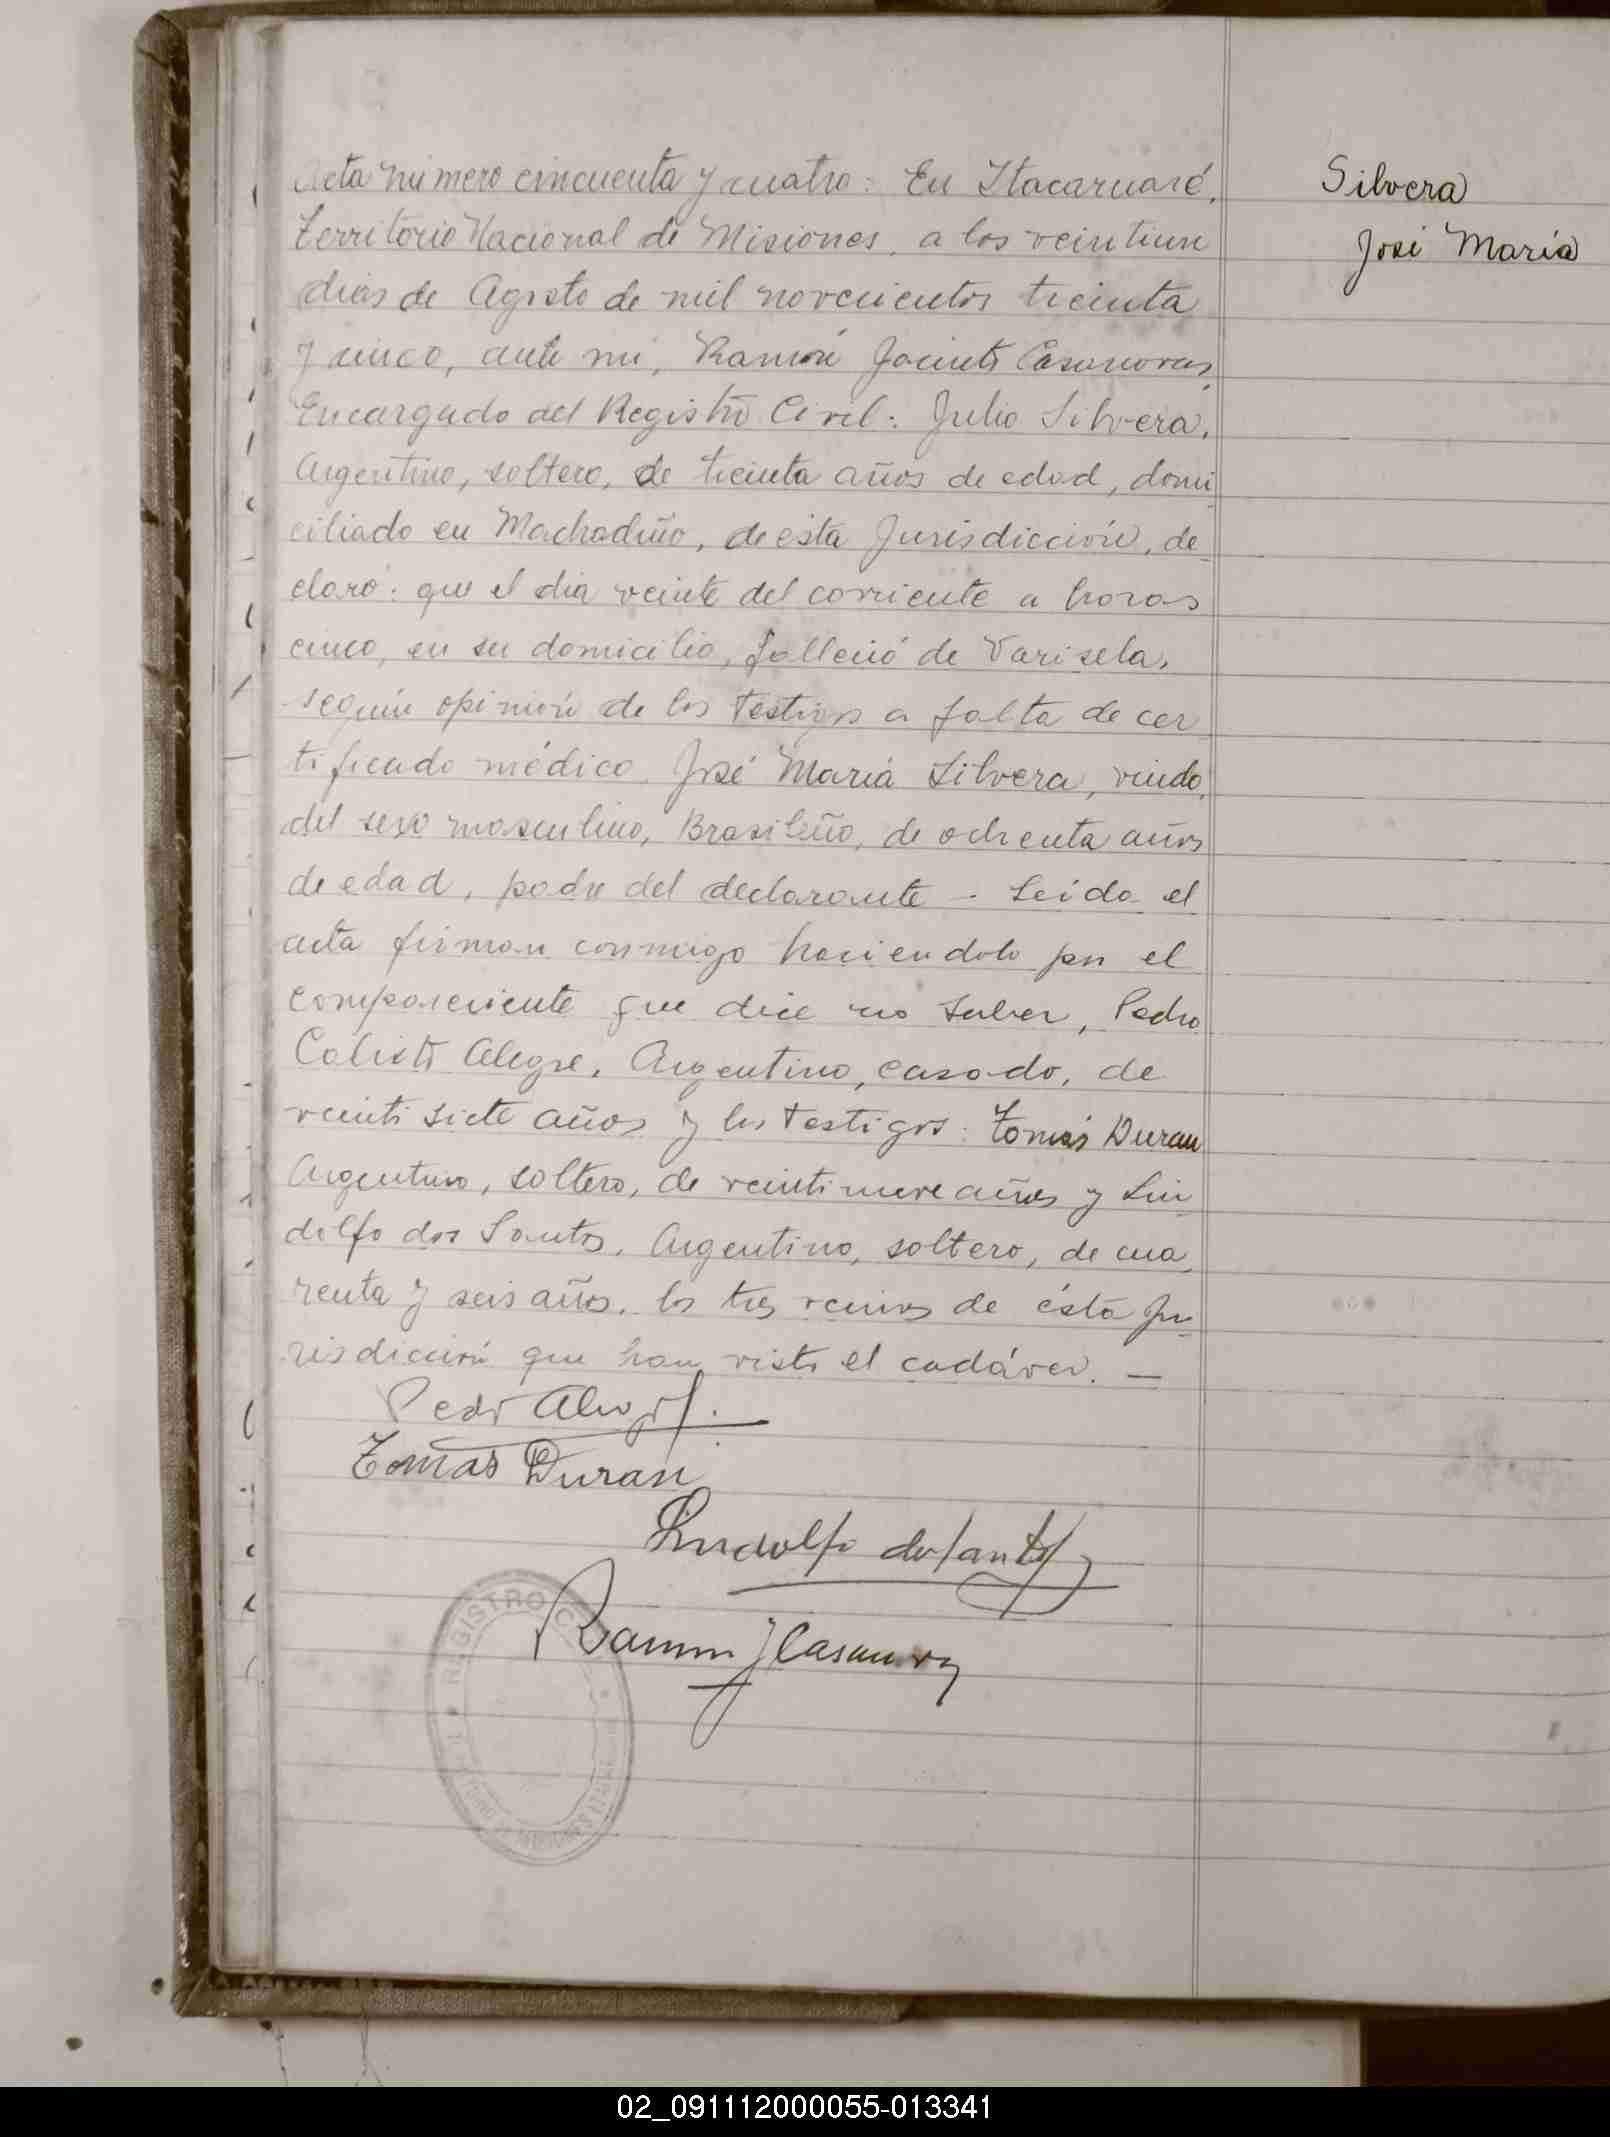 Acta número cincuenta y cuatro: En Itacaruaré,
Territorio Nacional de Misiones, a los veintiun
dias de Agosto de mil novecientos treinta
y cinco, ante mi, Ramón Jacinto Casanovas,
Encargado del Registro Civil: Julio Silvera,
Argentino, soltero, de treinta años de edad, domi
ciliado en Machadiño, de ésta Jurisdicción, de
claró: que el dia veinte del corriente a horas
cinco, en su domicilio, falleció de Varisela,
según opinión de los testigos a falta de cer
tificado médico José Maria Silvera, viudo,
del sexo masculino, Brasileño, de ochenta años
de edad, padre del declarante - Leida el
acta firman conmigo haciendolo por el
compareciente que dice no saber, Pedro
Calisto Alegre, Argentino, casado, de
veinti siete años y los testigos: Tomás Duran
Argentino, soltero, de veintinueve años y Lin
dolfo dos Santos, Argentino, soltero, de cua
renta y seis años, los tres vecinos de ésta Ju
risdicción que han visto el cadáver. —
Silvera
José Maria
Tomas Duran
Lindolfo dos Santos
Ramon J Casanovas
REGISTRO C
02_091112000055-013341